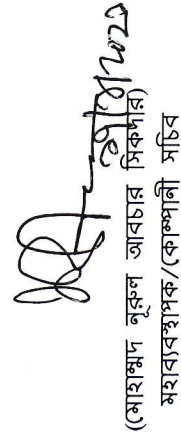 (মোহাম্মদ নূরুল আবচার সিকদার)
মহাব্যবস্থাপক/কোম্পানী সচিব